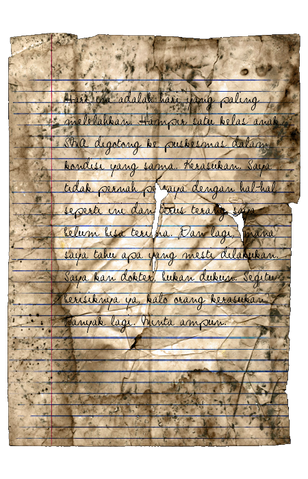 Hari ini adalah hari yang paling
melelahkan. Hampir satu kelas anak
SMA digotong ke puskesmas dalam
kondisi yang sama. Kerasukan. Saya
tidak pernah percaya dengan hal-hal
seperti ini dan terus terang saya
belum bisa terima. Dan lagi, mana
saya tahu apa yang mesti dilakukan.
Saya kan dokter, bukan dukun. Segitu
berisiknya ya, kalo orang kerasukan
banyak lagi. Minta ampun.